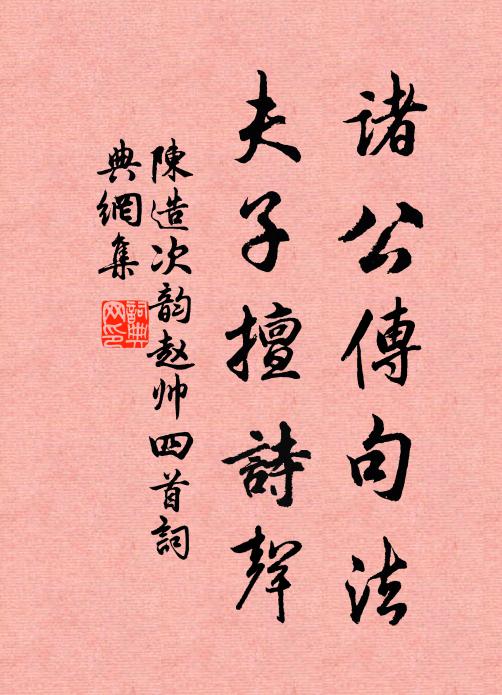 諸公傳句法
夫子擅詩聲
陳造次韵赵帅四首詞
典網集
詞典网印